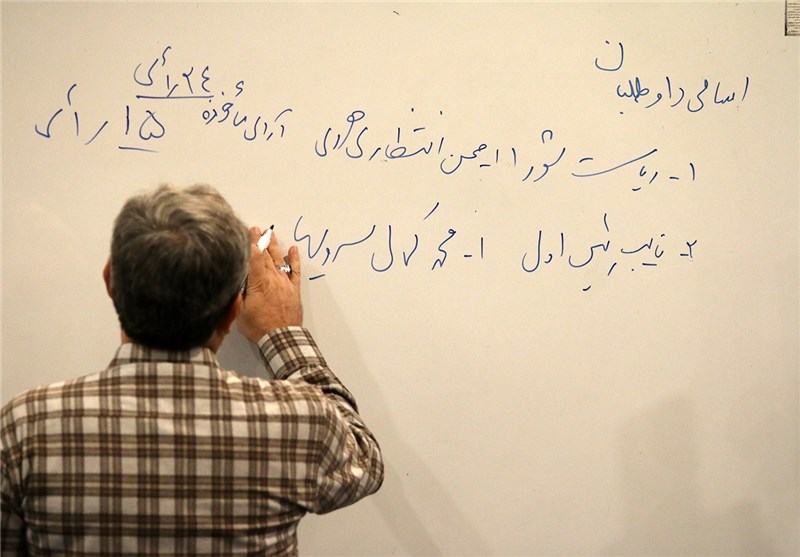 اسامی داوطلبان
۱- ریاست شورا ایمن انتظاری هروی آرای مأخوذه ۲۴ رأی
۱۵ رأی
۲- نایب رئیس اول ۱- محمد کمال سرویها